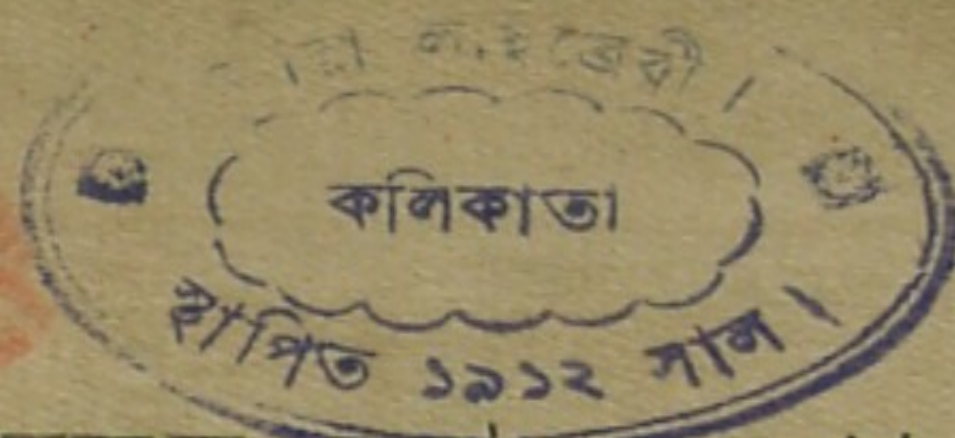 লাইব্রেরী।
কলিকাতা
স্থাপিত ১৯১২ সাল।